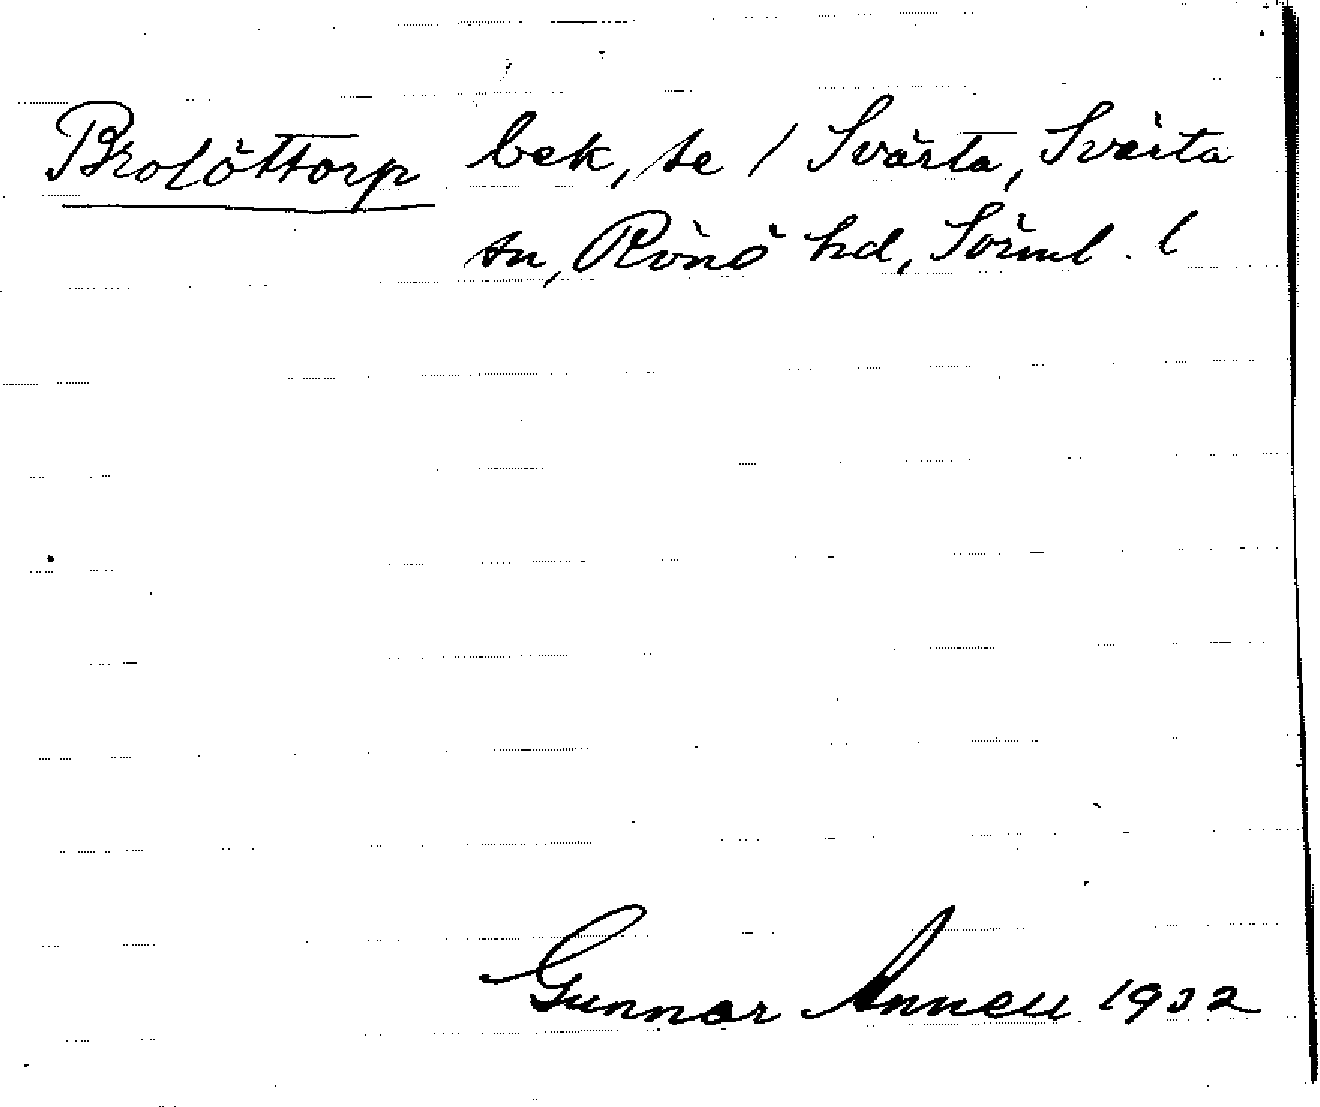 Broslöttorp bek, se / Svärta, Svärta
sn, Rönö hd, Sörml. l
Gunnar Annell 1932